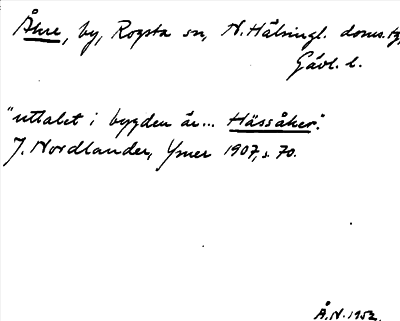 Åkre, by, Rogsta sn, N. Hälsingl. doms.
Gävl. l.
"uttalet i bygden är... Hässåker".
J. Nordlander, Ymer 1907, s. 70.
Å.N. 1952.